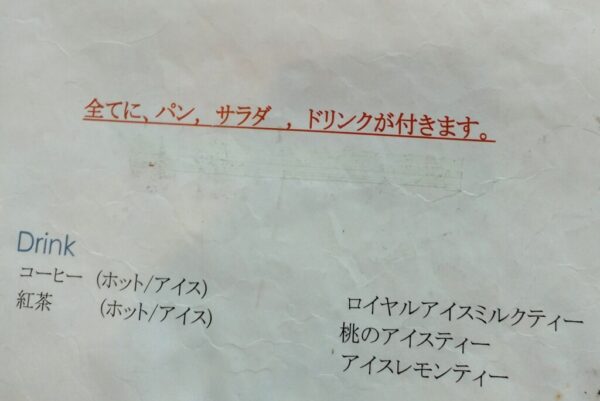 全てに、パン, サラダ , ドリンクが付きます。
Drink
コーヒー (ホット/アイス)
紅茶 (ホット/アイス)
ロイヤルアイスミルクティー
桃のアイスティー
アイスレモンティー